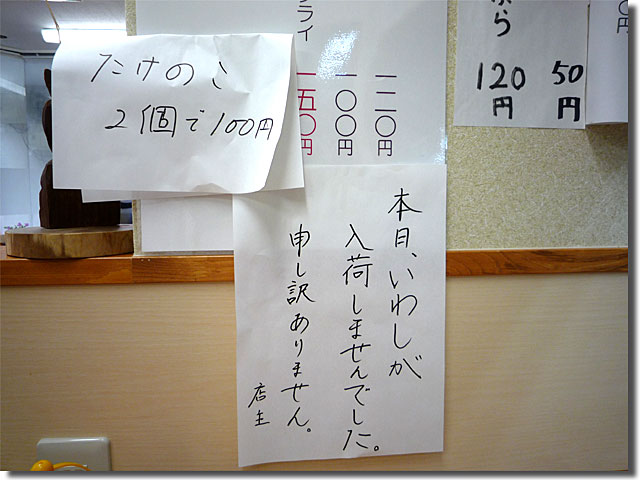 たけのこ
2個で100円
ライ
一五〇円
一〇〇円
一一〇円
ぷら
120円
50円
円
本日、いわしが
入荷しませんでした。
申し訳ありません。
店主